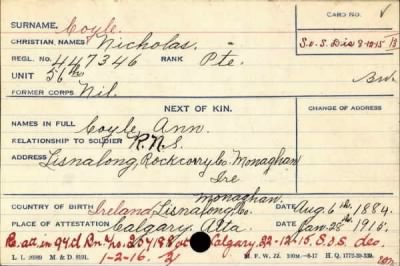 SURNAME. Coyle.
CARD NO.
CHRISTIAN NAMES Nicholas.
S.O.S. Dis 8-10-15
REGL. NO. 447346 RANK Pte.
UNIT 56th
FORMER CORPS Nil.
NEXT OF KIN.
CHANGE OF ADDRESS
NAMES IN FULL Coyle, Ann.
RELATIONSHIP TO SOLDIER R.N.S.
ADDRESS Lisnalong, Rockcorry Co Monaghan
Ire
Monaghan.
COUNTRY OF BIRTH Ireland, Lisnalong, Co DATE Aug. 6th, 1884.
PLACE OF ATTESTATION Calgary, Alta DATE Jan. 28th, 1915.
at Calgary, 22-12-15. S.O.S. des.
1-2-16.
L. L. M. & D. M. F. W. 22. H. Q. 1772-39-339.